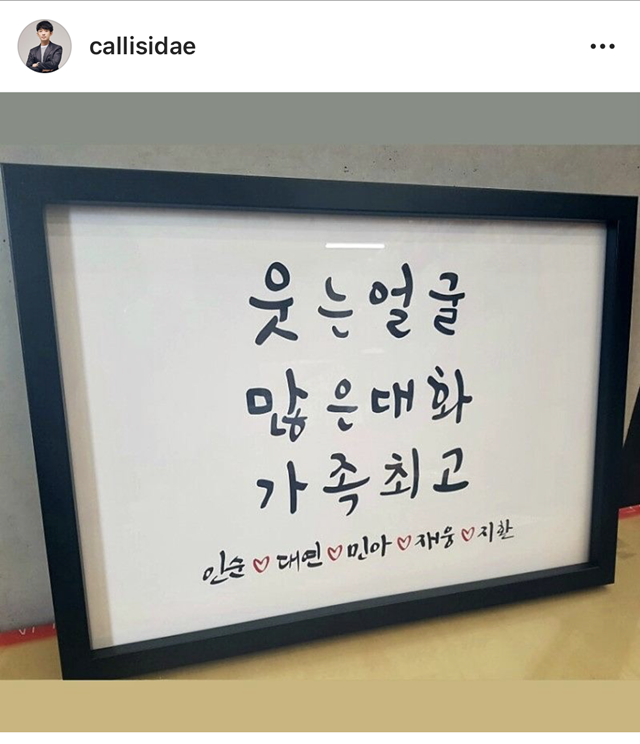 callisidae
웃는얼굴
많은대화
가족최고
인순♡대연♡민아♡재웅♡지환